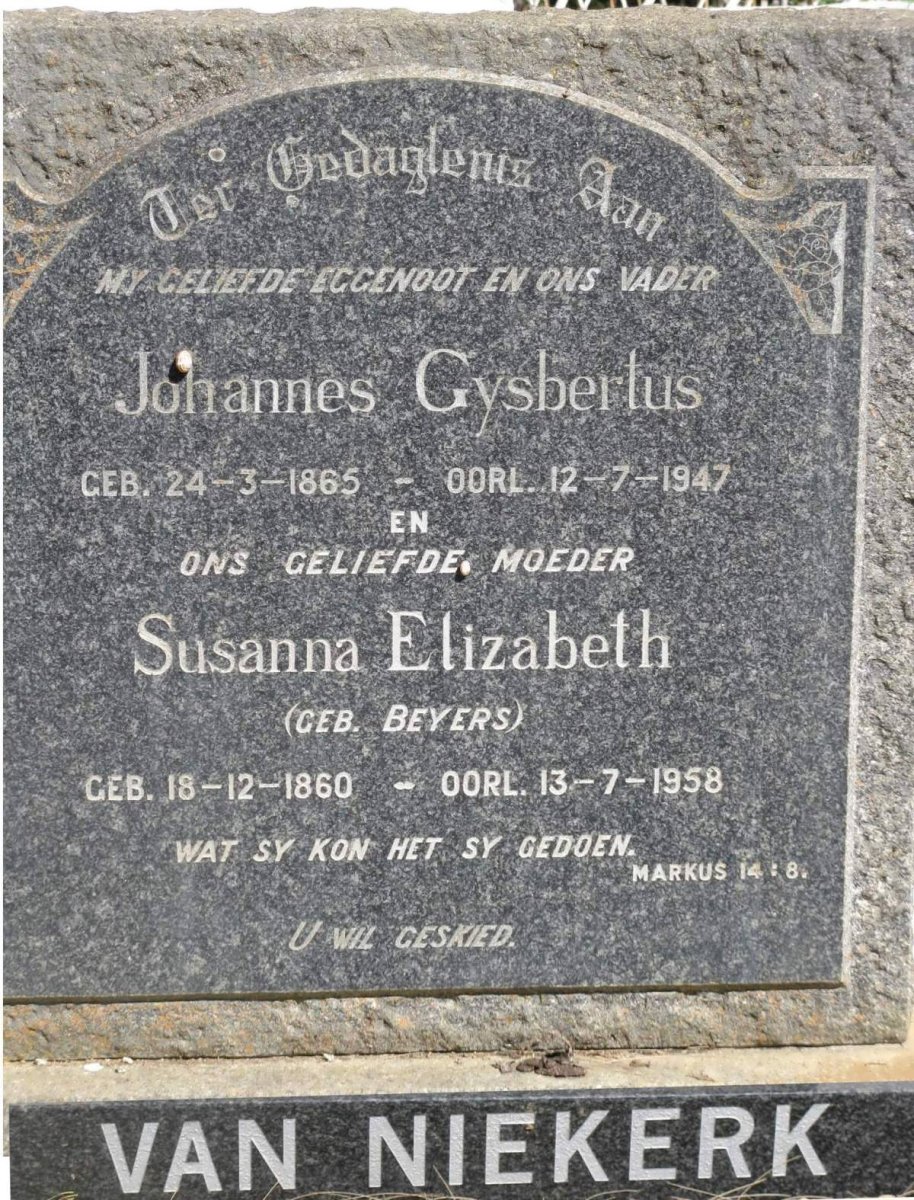 Ter Gedagtenis Aan
MY GELIEFDE EGGENOOT EN ONS VADER
Johannes Gysbertus
GEB. 24-3-1865 - OORL. 12-7-1947
EN
ONS GELIEFDE MOEDER
Susanna Elizabeth
(GEB. BEYERS)
GEB. 18-12-1860 - OORL. 13-7-1958
WAT SY KON HET SY GEDOEN.
MARKUS 14:8.
U WIL GESKIED.
VAN NIEKERK